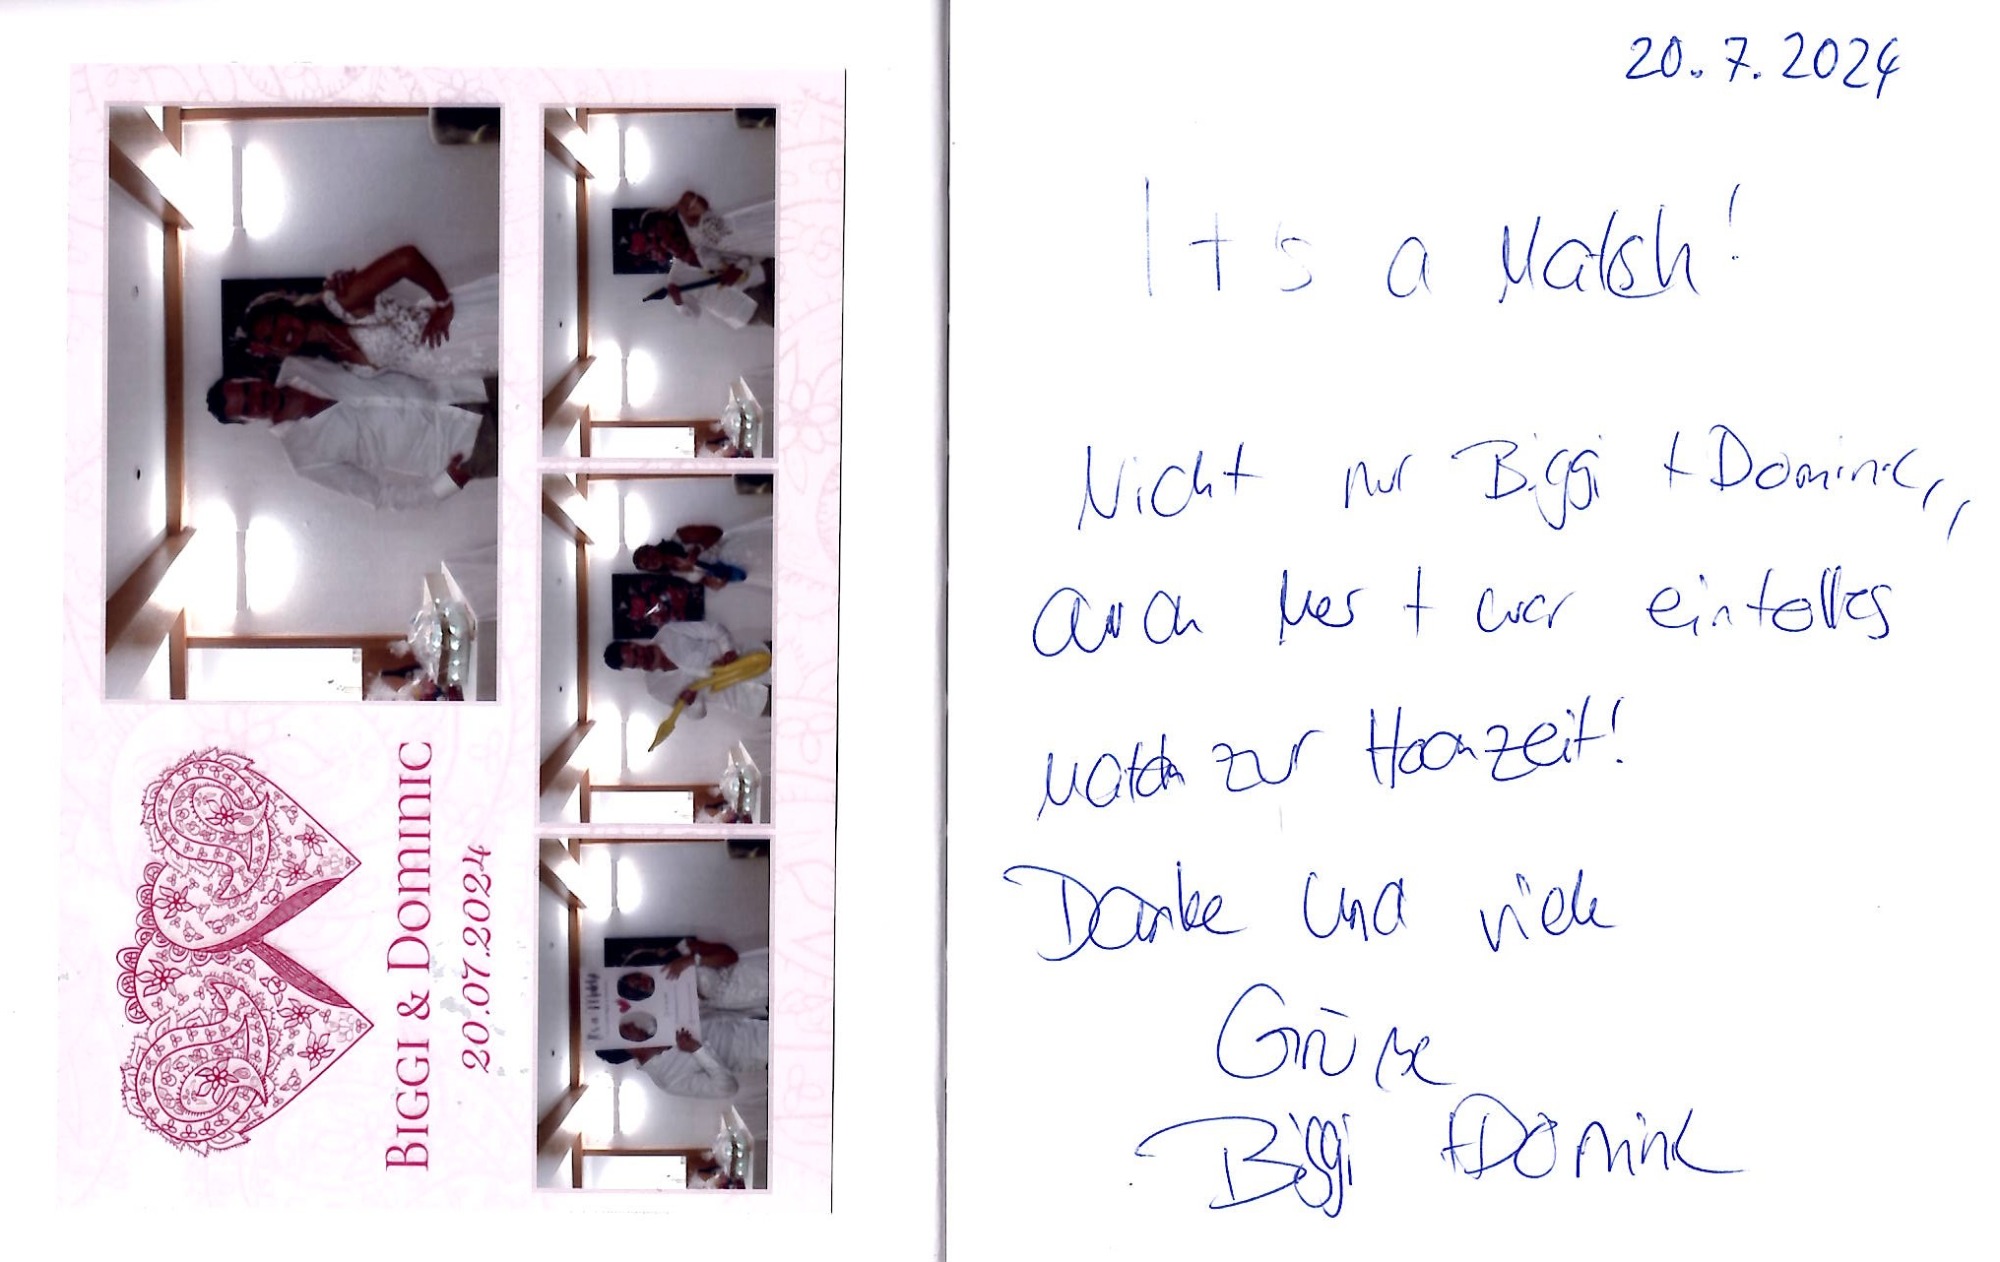 BIGGI & DOMINIC
20.07.2024
20.7.2024
It's a Matsh!
Nicht nur Biggi + Dominic,
auch hier + war ein tolles
Match zur Hochzeit!
Danke und viele
Grüße
Biggi + Dominic